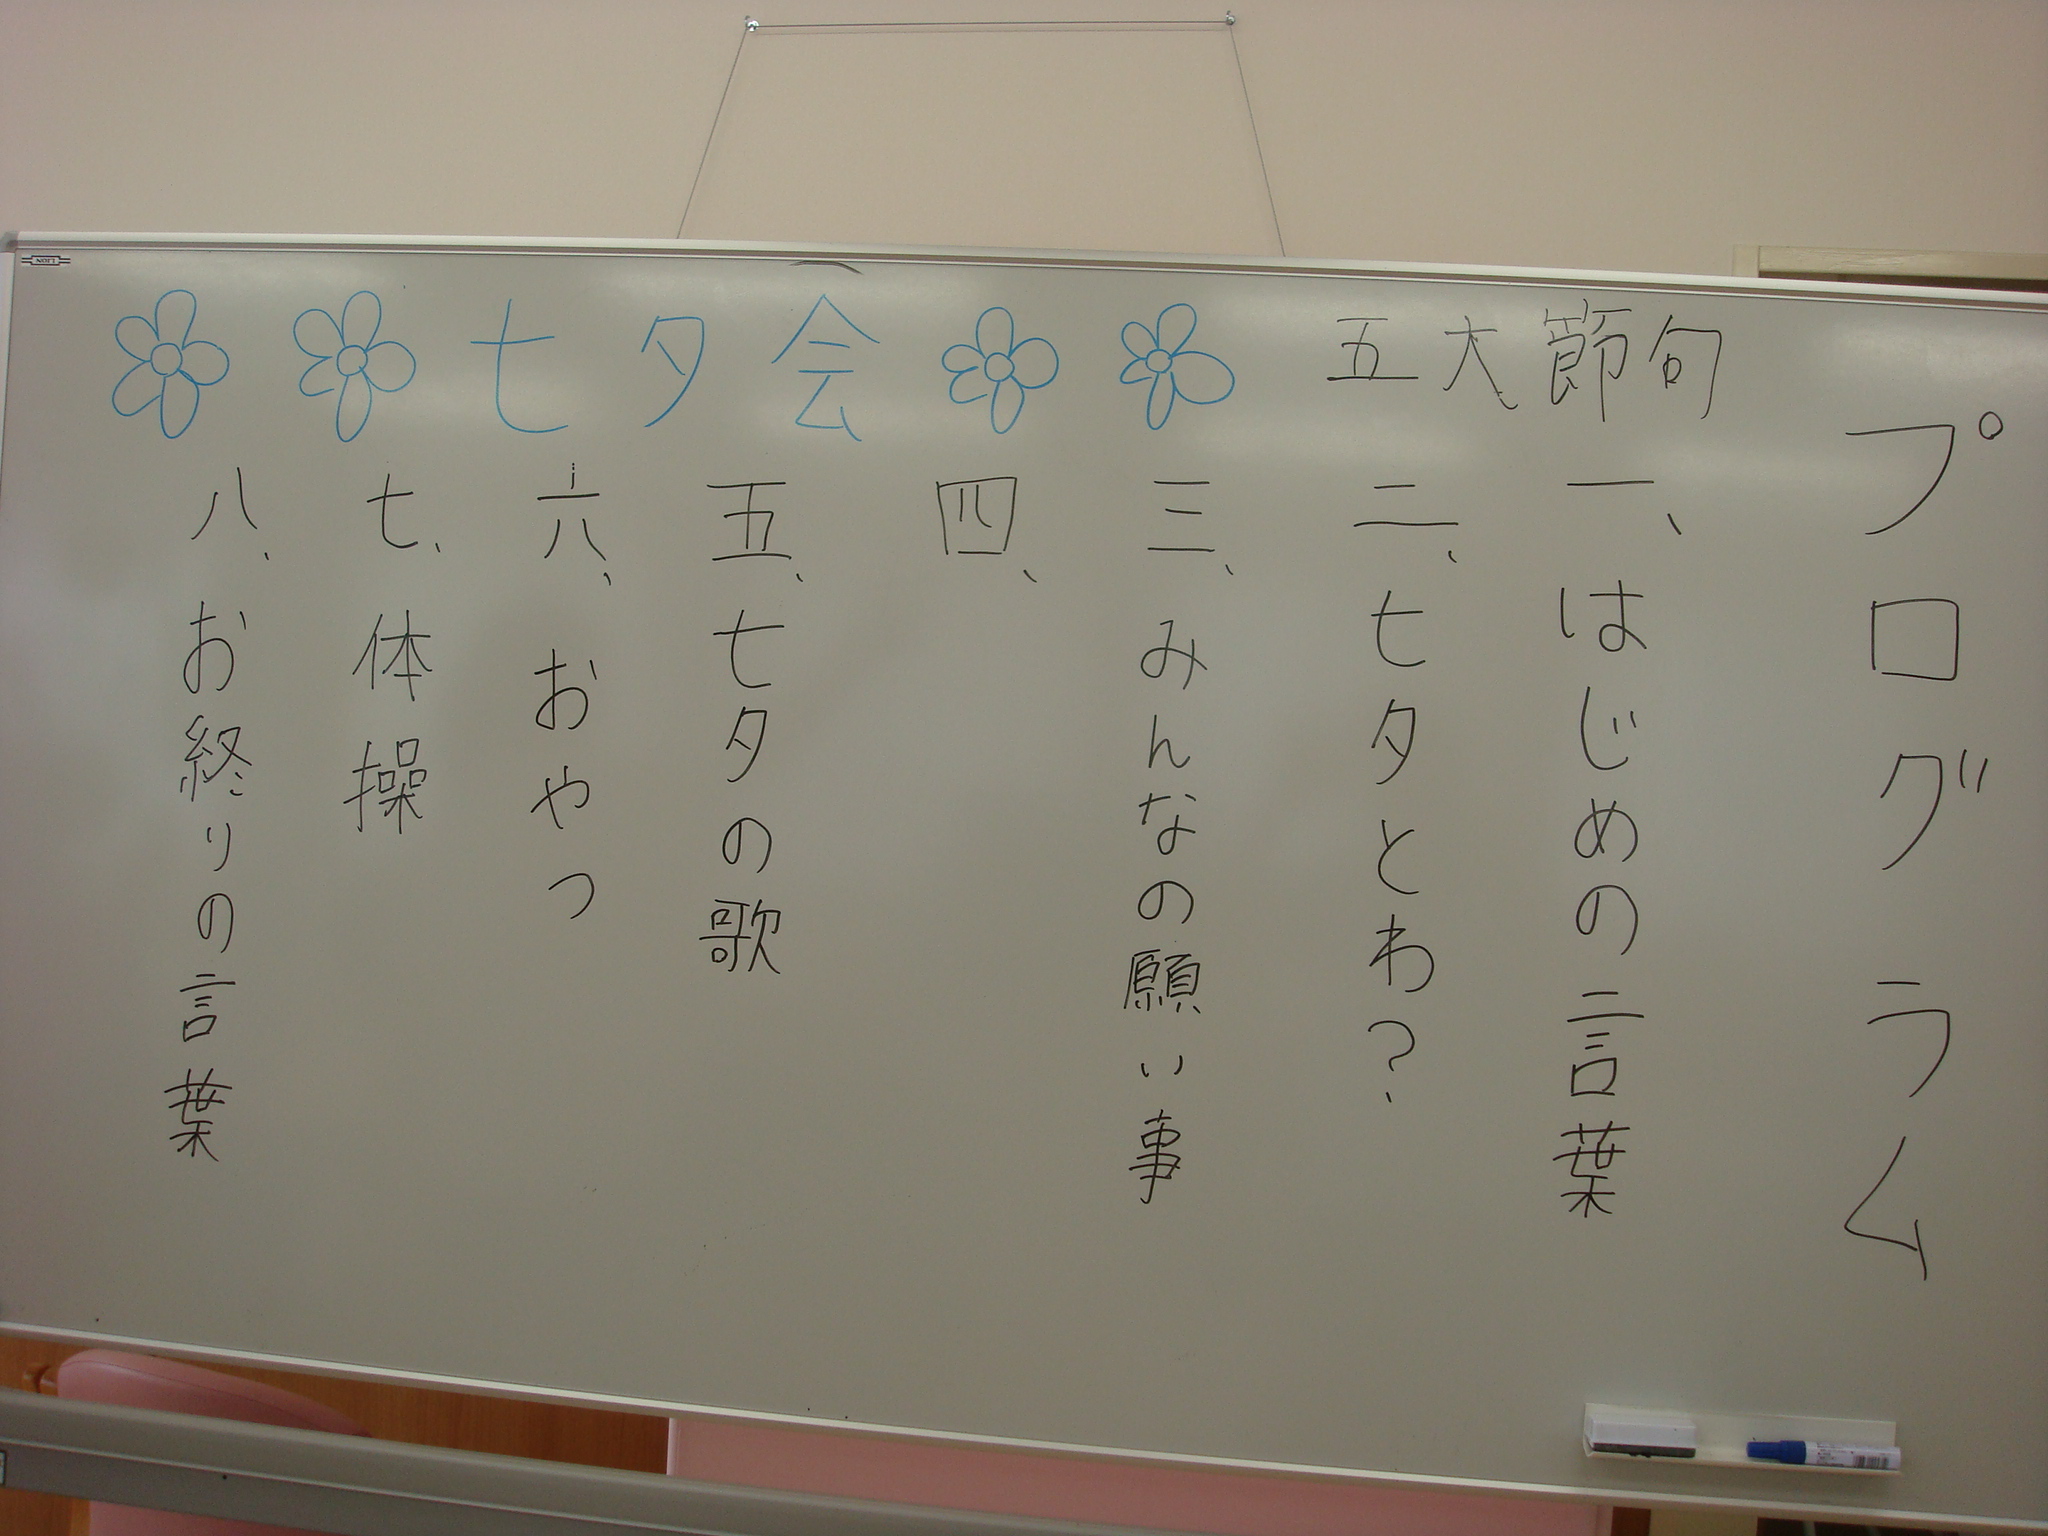 七夕会
五大節句
プログラム
一、はじめの言葉
二、七夕とわ?
三、みんなの願い事
四、
五、七夕の歌
六、おやつ
七、体操
八、お終りの言葉
LION